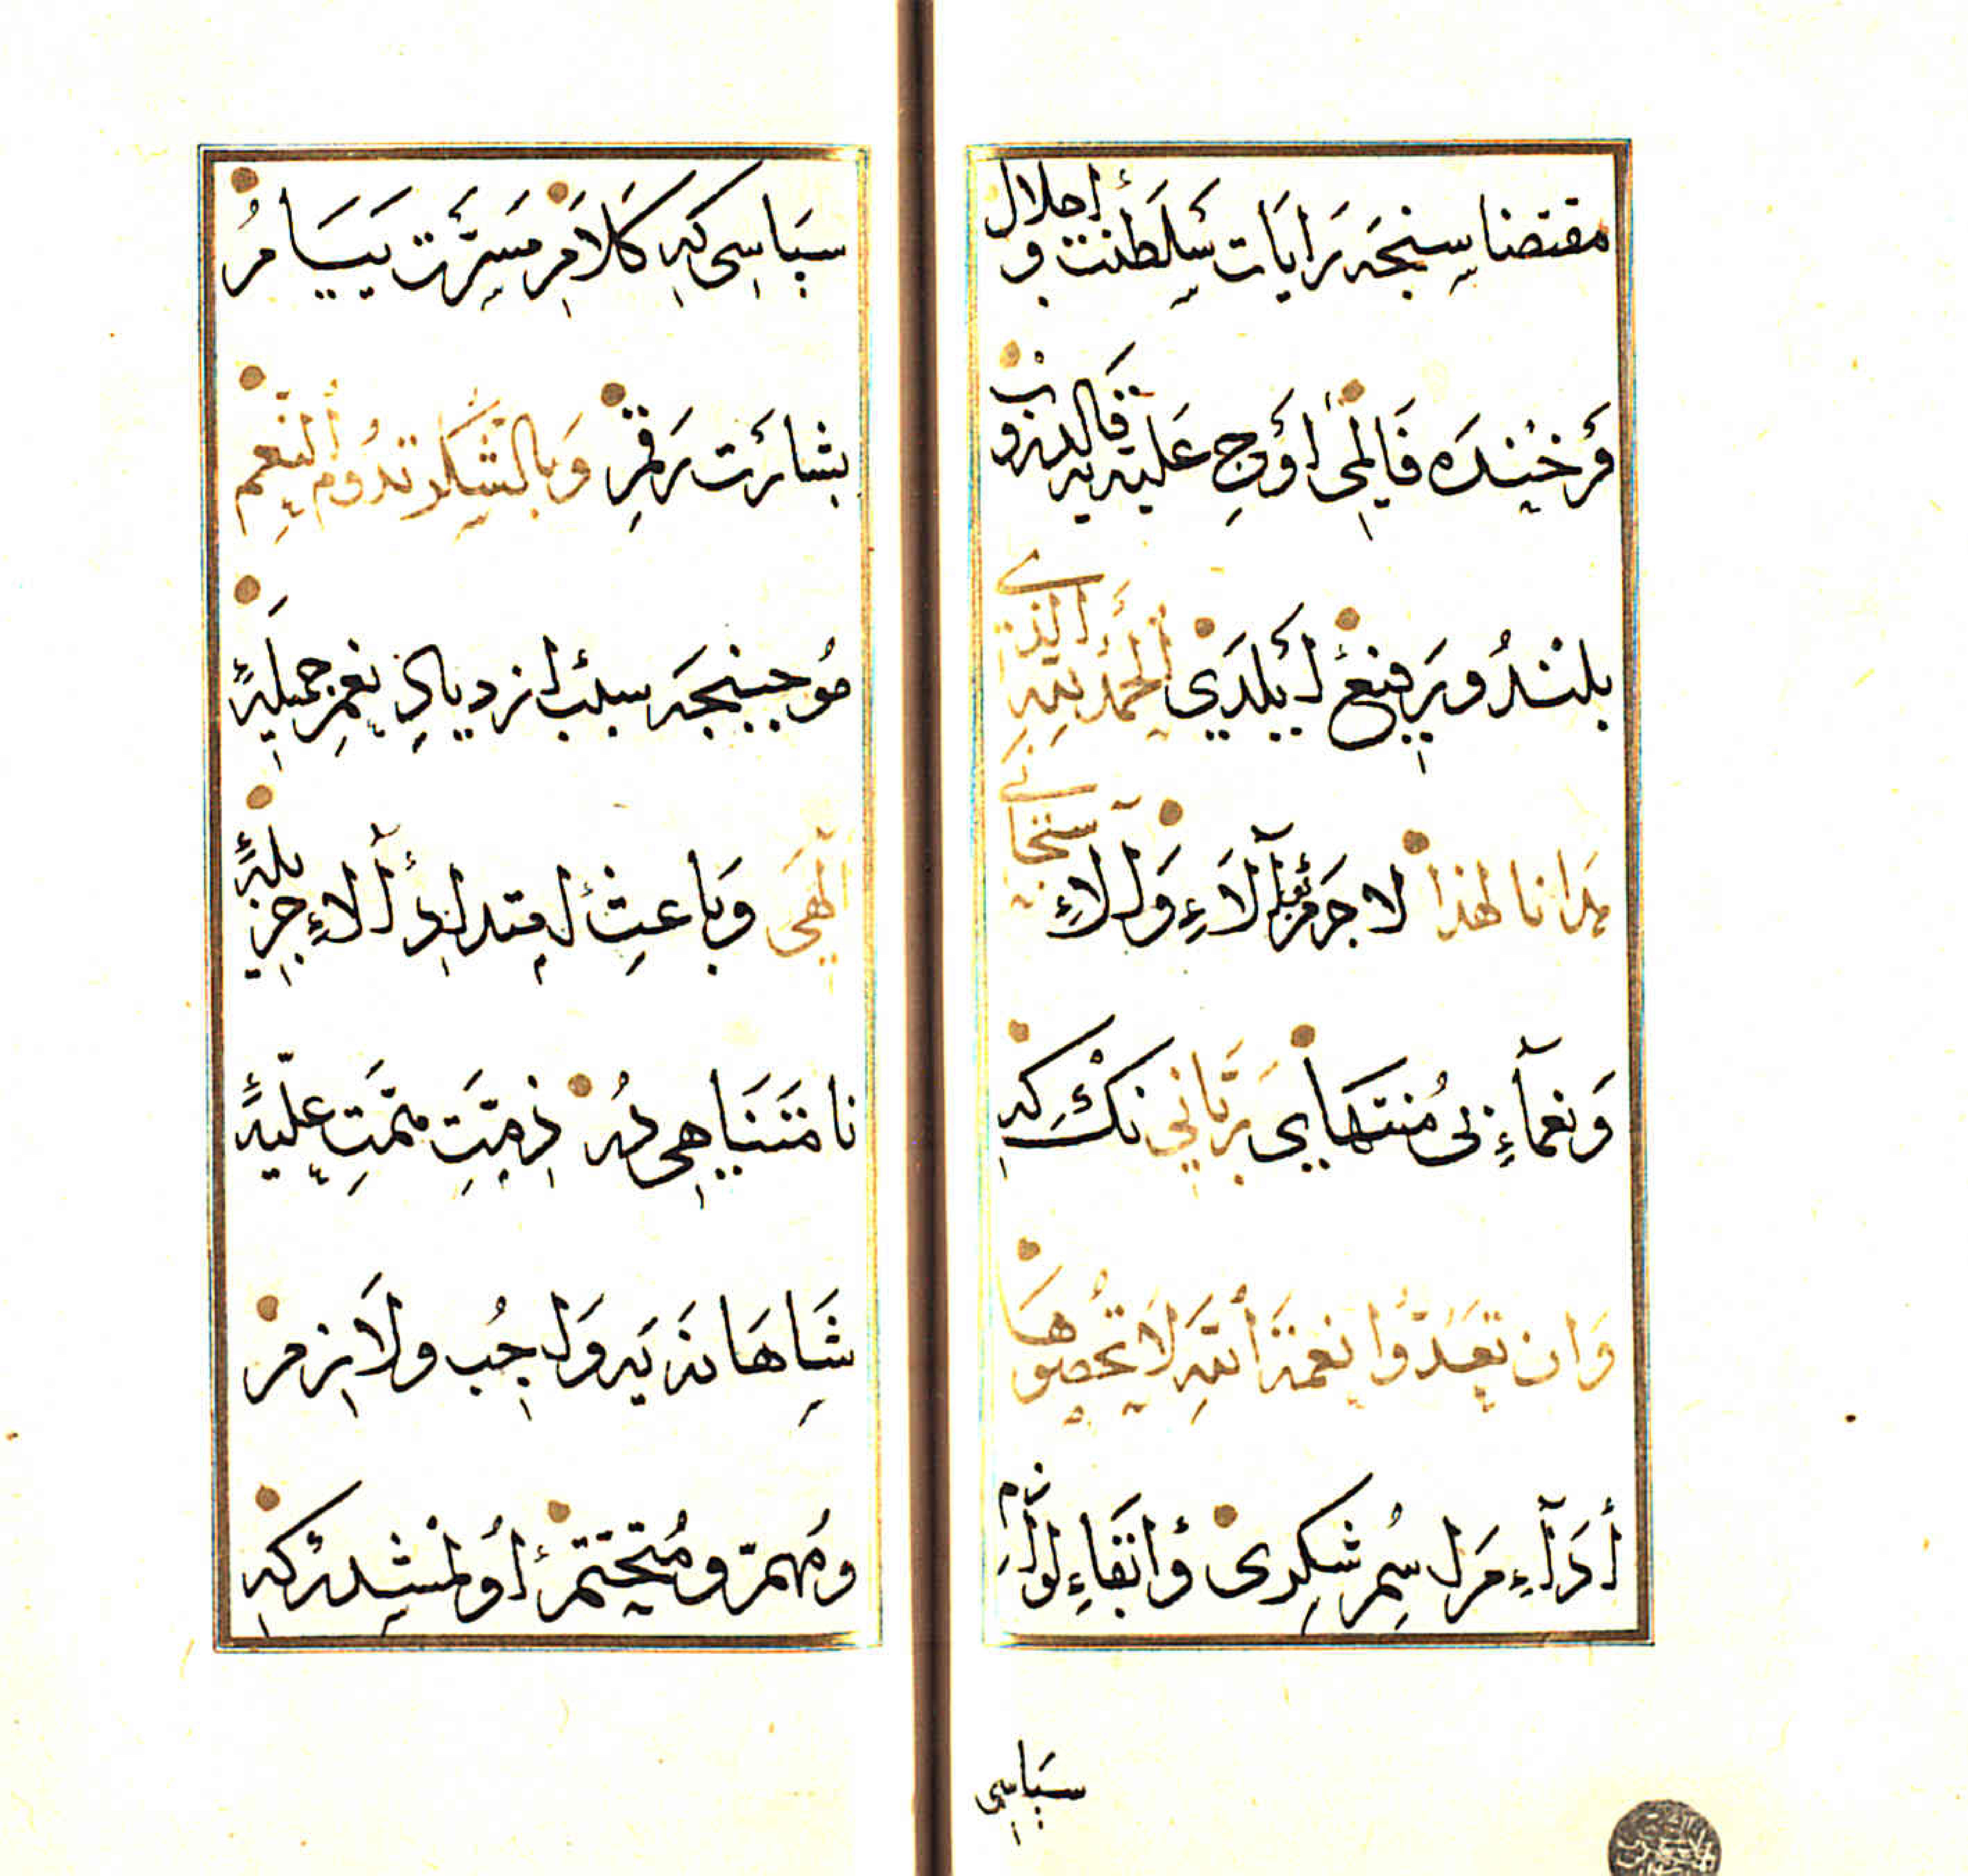 مقتضاسنجه رايات سلطنت و اجلال
فرخنده فالمى اوج عليه فالدروب
بلند و رفيع ايلدى الحمد لله الذى
هدانا لهذا لا جرم آلاء والاء سبحانى
و نعماء بى منتهاى ربانى نك كه
وان تعدوا نعمة الله لا تحصوها
اداء مراسم شكرى و ابقاء لوازم
سپاسى
سپاسى كه كلام مسرت پيام
بشارت رقم و بالشكر تدوم النعم
موجبنجه سبب ازدياد نعم جميلۀ
الهى و باعث امتداد آلاء جزيلۀ
نامتناهى در ذمت همت عليۀ
شاهانه يه واجب و لازم
و مهم و متحتم اولمشدر كه